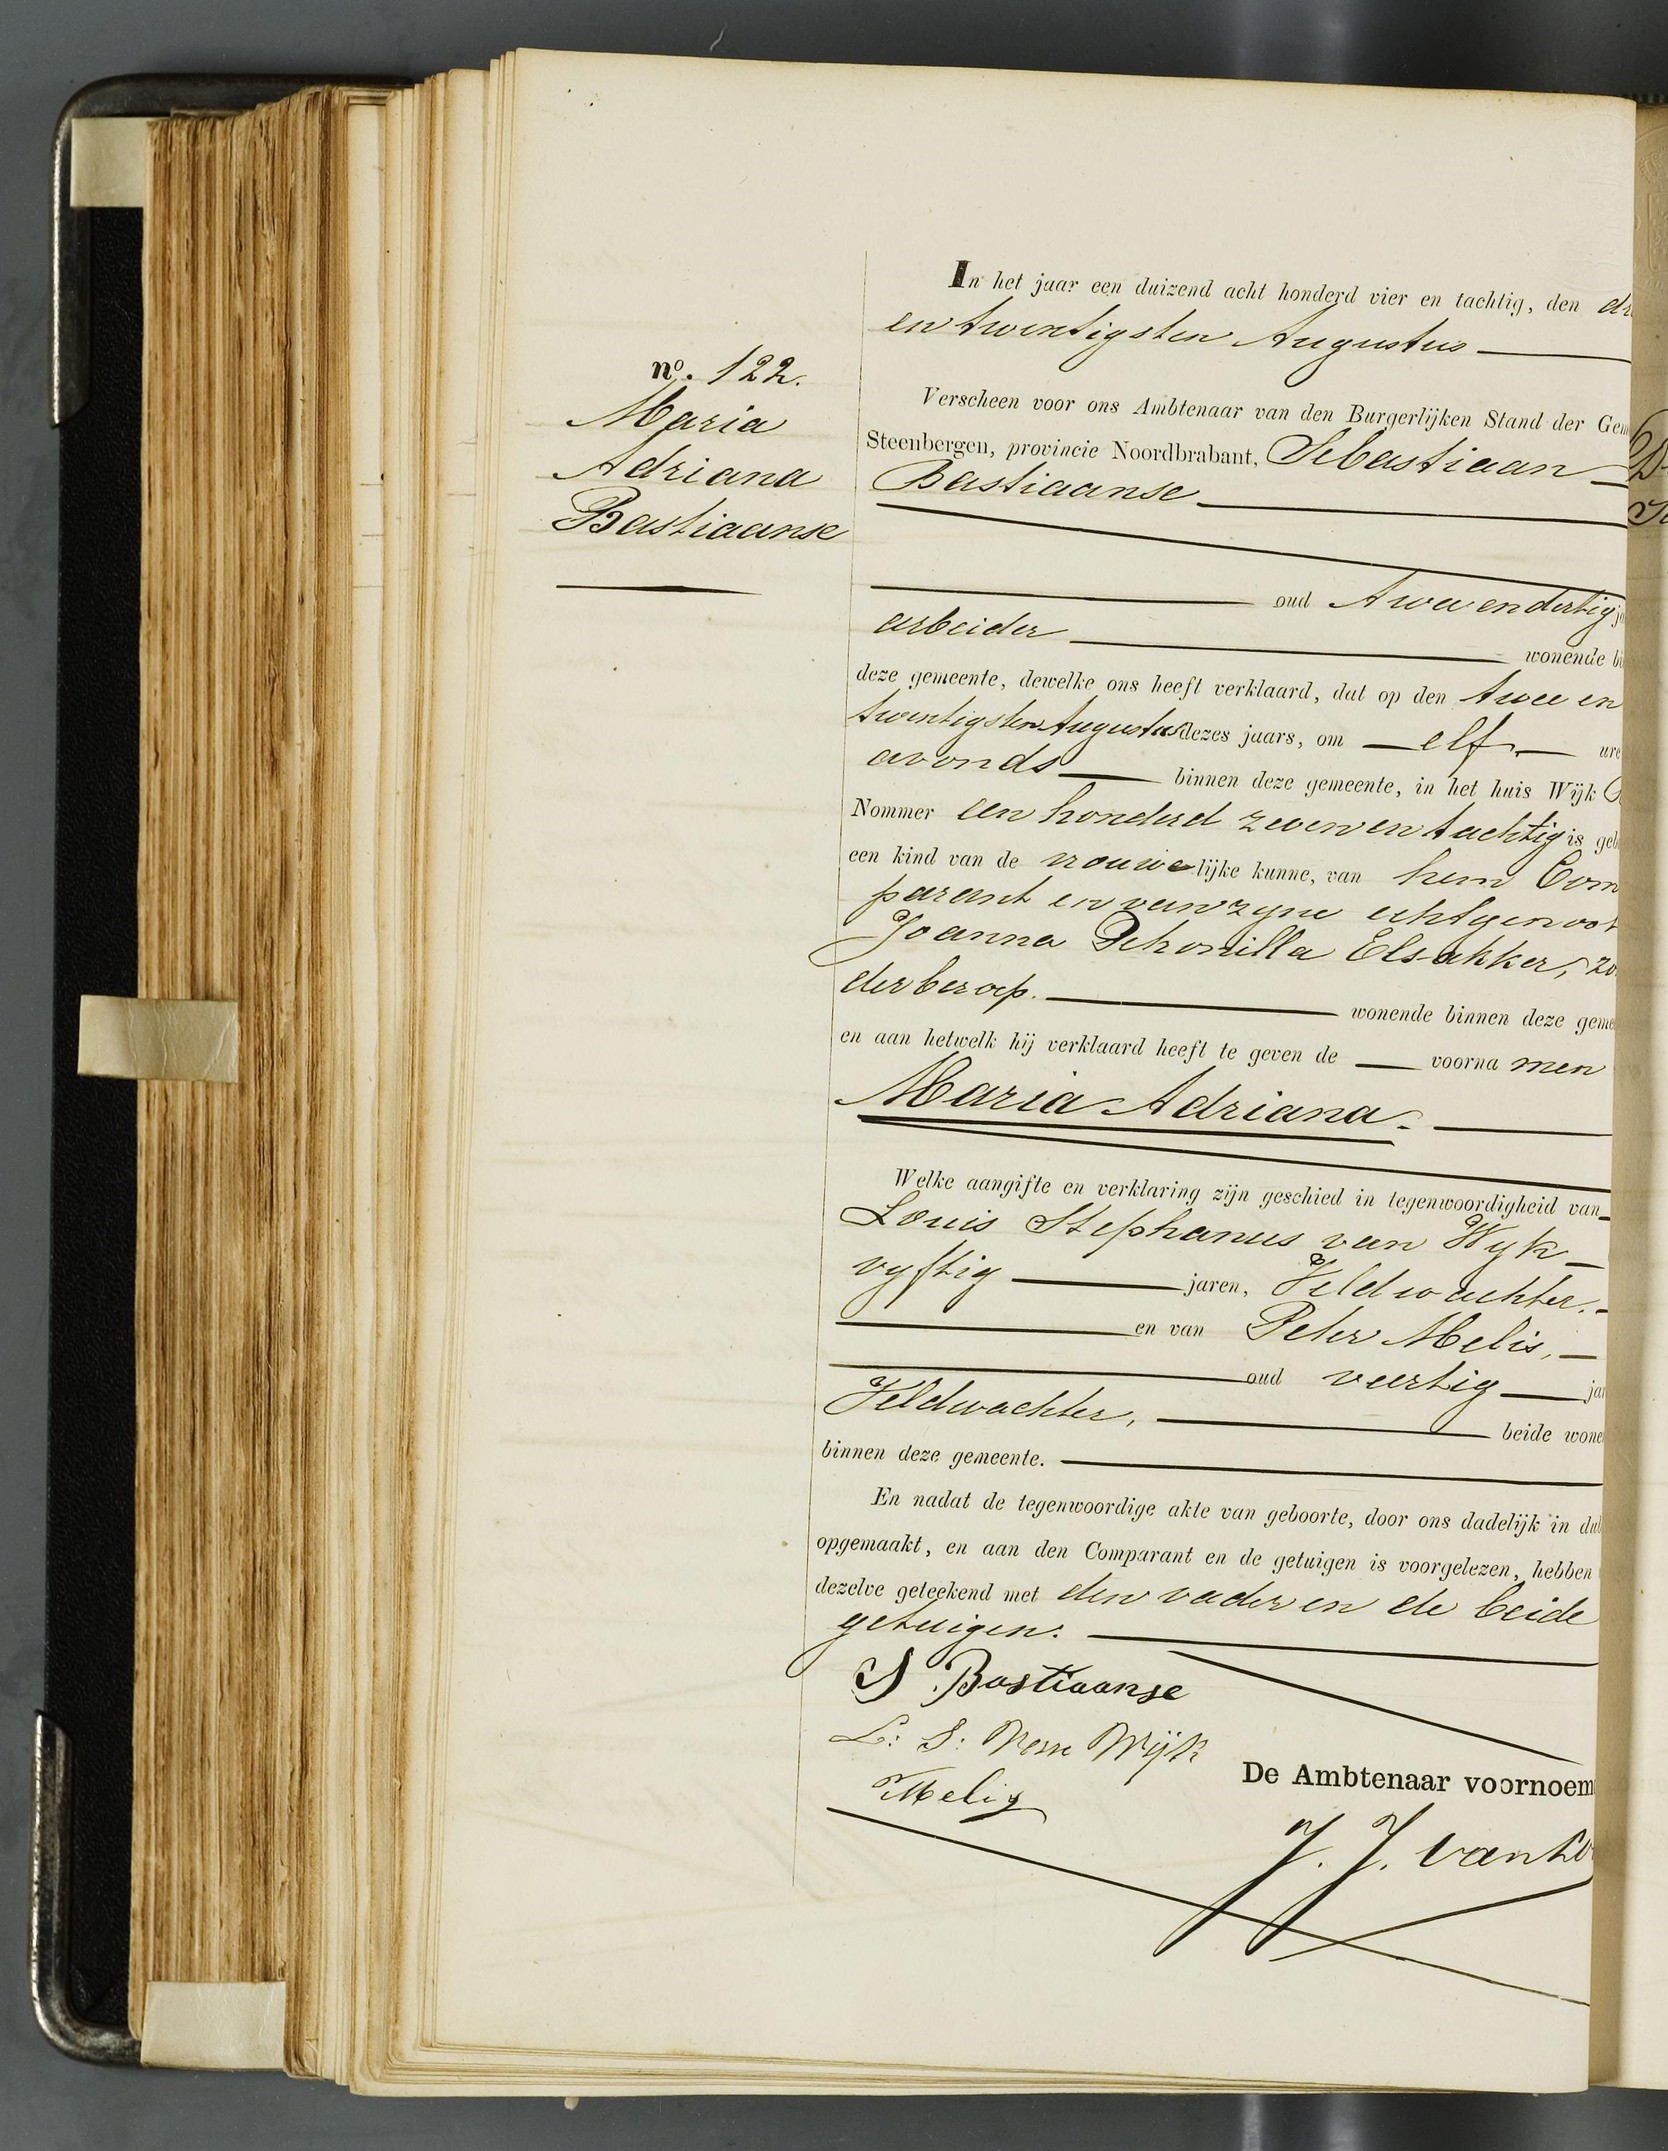 nº. 122.
Maria
Adriana
Bastiaanse
In het jaar een duizend acht honderd vier en tachtig, den
en twintigsten Augustus
Verscheen voor ons Ambtenaar van den Burgerlijken Stand der Gem
Steenbergen, provincie Noordbrabant, Sebastiaan
Bastiaanse
oud twee en dertig j
arbeider wonende bi
deze gemeente, dewelke ons heeft verklaard, dat op den twee en
twintigsten Augustus dezes jaars, om elf ure
avonds binnen deze gemeente, in het huis Wijk
Nommer een honderd zeven en tachtig is geb
een kind van de vrouwelijke kunne, van hem Com
parant en van zyne echtgenoot
Joanna Petronilla Elsakker, zo
der beroep. wonende binnen deze geme
en aan hetwelk hij verklaard heeft te geven de voorna men
Maria Adriana.
Welke aangifte en verklaring zijn geschied in tegenwoordigheid van
Louis Stephanus van Wyk
vyftig jaren, Veldwachter.
en van Peter Melis,
oud veertig jar
Veldwachter, beide wone
binnen deze gemeente.
En nadat de tegenwoordige akte van geboorte, door ons dadelijk in dub
opgemaakt, en aan den Comparant en de getuigen is voorgelezen, hebben
dezelve geteekend met den vader en de beide
getuigen.
S Bastiaanse
L: S: Van Wijk
Melis
De Ambtenaar voornoem
J. J. van